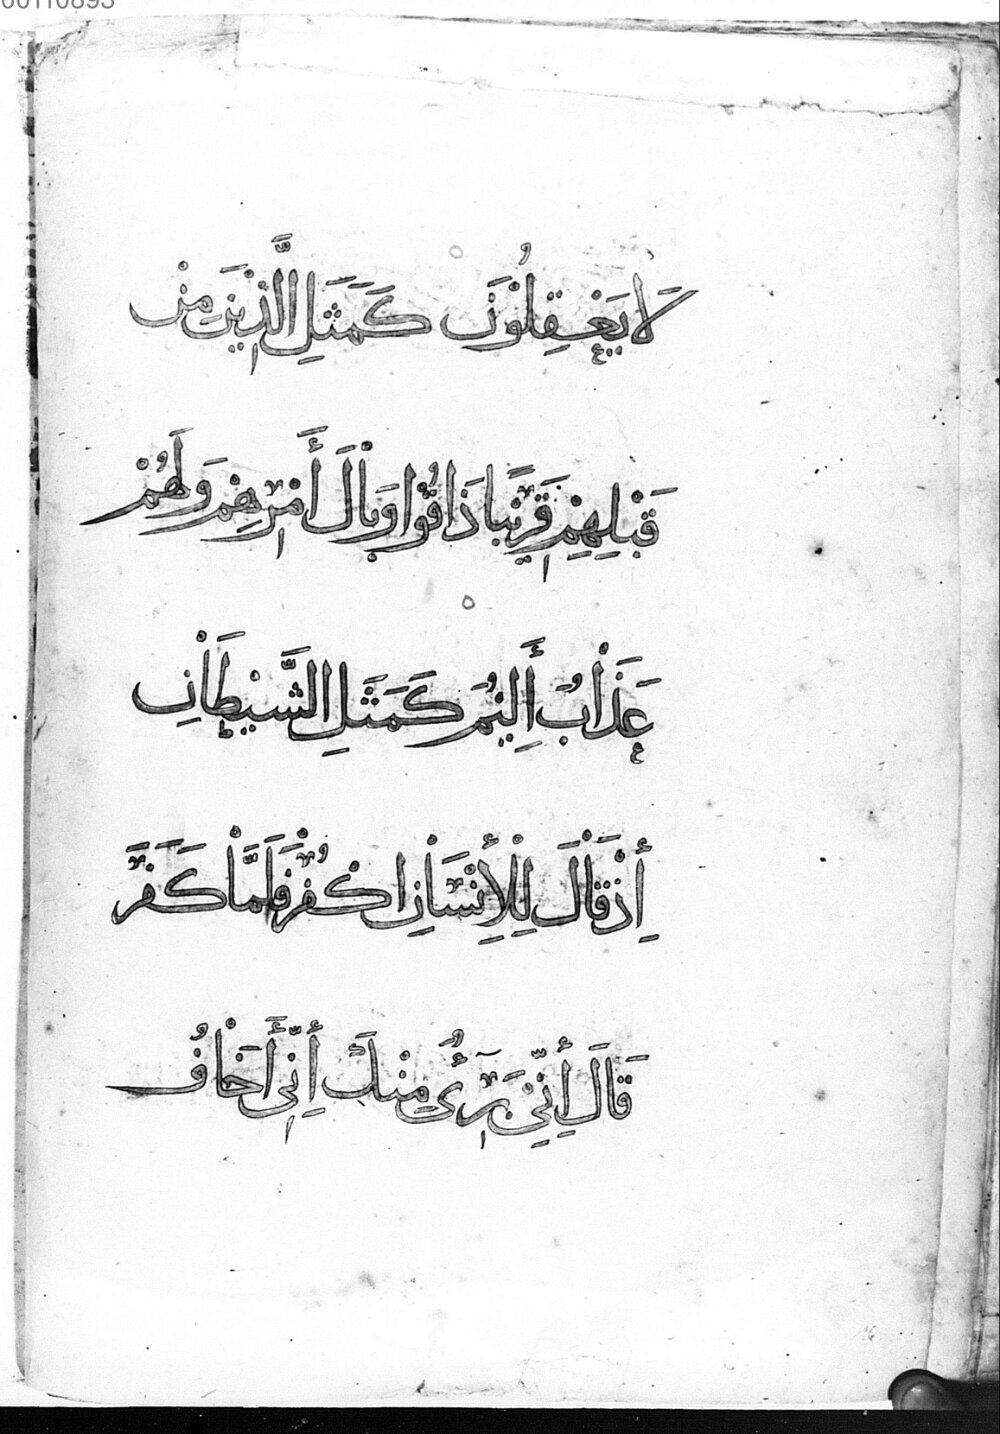 00110893
لَا يَعْقِلُوْنَ كَمَثَلِ الَّذِيْنَ مِنْ
قَبْلِهِمْ قَرِيْبًا ذَاقُوْا وَبَالَ أَمْرِهِمْ وَلَهُمْ
عَذَابٌ أَلِيْمٌ كَمَثَلِ الشَّيْطَانِ
إِذْ قَالَ لِلْأِنْسَانِ اكْفُرْ فَلَمَّا كَفَرَ
قَالَ إِنِّيْ بَرِيْءٌ مِنْكَ إِنِّيْ أَخَافُ
16